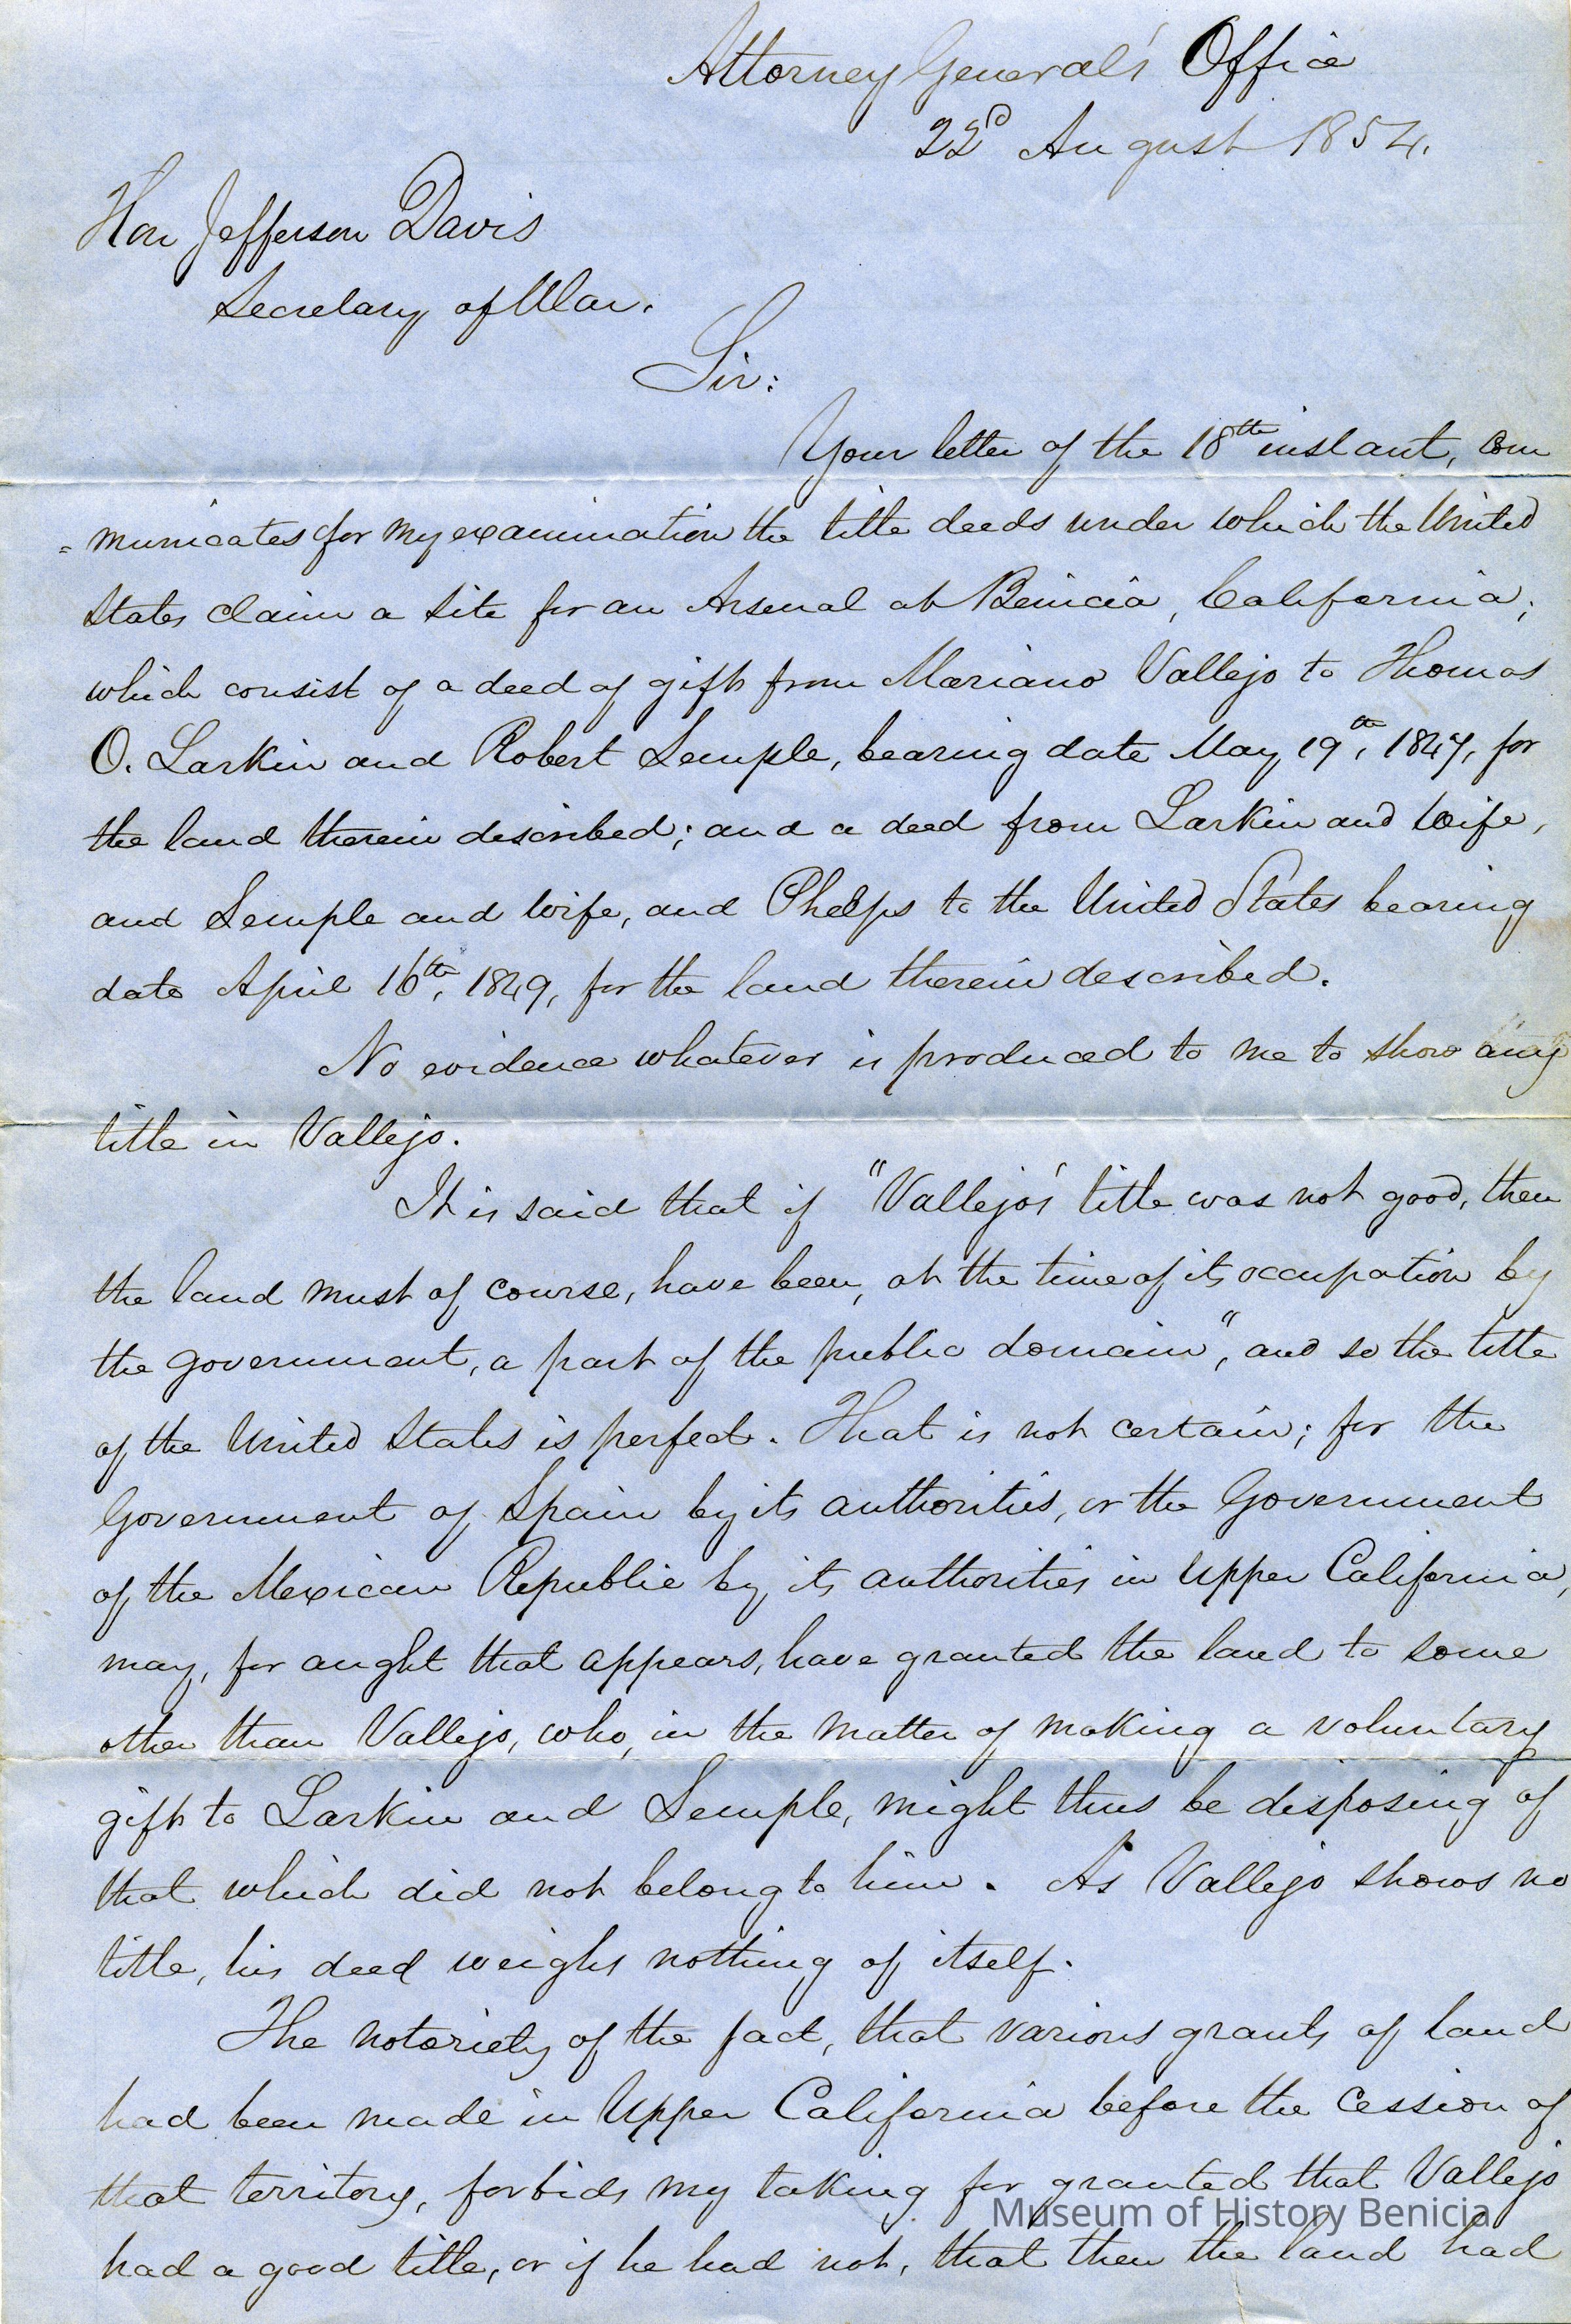 Attorney General's Office
22d August 1854.
Hon Jefferson Davis
Secretary of War.
Sir:
Your letter of the 18th instant, com
=municates for my examination the title deeds under which the United
States claim a site for an Arsenal at Benicia, California;
which consist of a deed of gift from Mariano Vallejo to Thomas
O. Larkin and Robert Semple, bearing date May 19th, 1847, for
the land therein described; and a deed from Larkin and wife,
and Semple and wife, and Phelps to the United States bearing
date April 16th, 1849, for the land therein described.
No evidence whatever is produced to me to show any
title in Vallejo.
It is said that if "Vallejo's title was not good, then
the land must of course, have been, at the time of its occupation by
the government, a part of the public domain", and so the title
of the United States is perfect. That is not certain; for the
Government of Spain by its authorities, or the Government
of the Mexican Republic by its authorities in Upper California,
may, for aught that appears, have granted the land to some
other than Vallejo, who, in the matter of making a voluntary
gift to Larkin and Semple, might thus be disposing of
that which did not belong to him. As Vallejo shows no
title, his deed weighs nothing of itself.
The notoriety of the fact, that various grants of land
had been made in Upper California before the cession of
that territory, forbids my taking for granted that Vallejo
had a good title, or if he had not, that then the land had
Museum of History Benicia